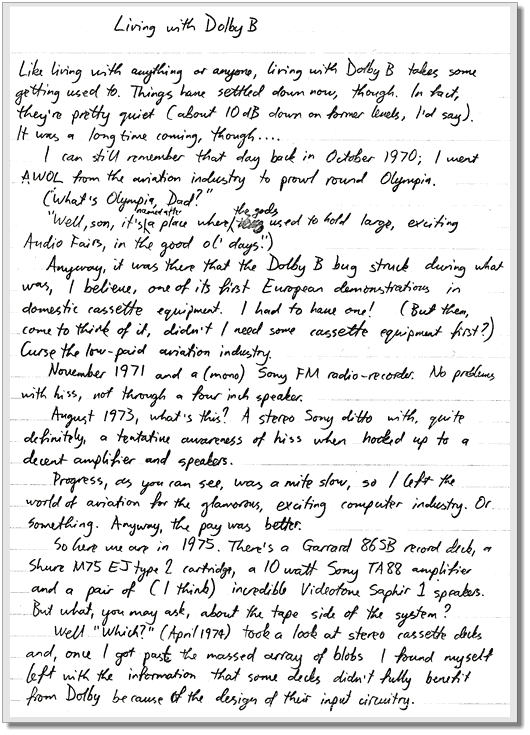 Living with Dolby B
Like living with anything or anyone, living with Dolby B takes some
getting used to. Things have settled down now, though. In fact,
they're pretty quiet (about 10dB down on former levels, I'd say).
It was a long time coming, though....
I can still remember that day back in October 1970; I went
AWOL from the aviation industry to prowl round Olympia.
("What's Olympia, Dad?"
"Well, son, it's named after a place where the gods used to hold large, exciting
Audio Fairs, in the good ol' days.")
Anyway, it was there that the Dolby B bug struck during what
was, I believe, one of its first European demonstrations in
domestic cassette equipment. I had to have one! (But then,
come to think of it, didn't I need some cassette equipment first?)
Curse the low-paid aviation industry.
November 1971 and a (mono) Sony FM radio-recorder. No problems
with hiss, not through a four inch speaker.
August 1973, what's this? A stereo Sony ditto with, quite
definitely, a tentative awareness of hiss when hooked up to a
decent amplifier and speakers.
Progress, as you can see, was a mite slow, so I left the
world of aviation for the glamorous, exciting computer industry. Or
something. Anyway, the pay was better.
So here we are in 1975. There's a Garrard 86SB record deck, a
Shure M75 EJ type 2 cartridge, a 10 watt Sony TA88 amplifier
and a pair of (I think) incredible Videotone Saphir 1 speakers.
But what, you may ask, about the tape side of the system?
Well "Which?" (April 1974) took a look at stereo cassette decks
and, once I got past the massed array of blobs I found myself
left with the information that some decks didn't fully benefit
from Dolby because of the design of their input circuitry.